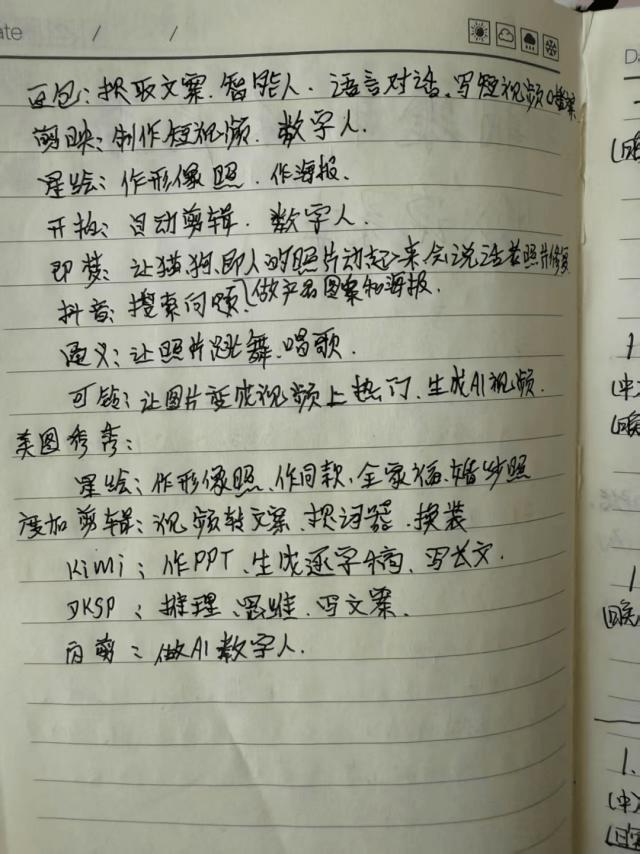 ate / /
豆包：提取文案、智能人、语言对话、写短视频口播案
剪映：制作短视频、数字人.
星绘：作形像照、作海报.
开拍：自动剪辑、数字人.
即梦：让猫、狗、即人的照片动起来会说话老照片修复
抖音：搜索问题、做产品图案和海报.
通义：让照片跳舞、唱歌.
可铃：让图片变成视频上热门、生成AI视频.
美图秀秀：
星绘：作形像照、作同款、全家福、婚纱照
度加剪辑：视频转文案、提词器、换装
Kimi：作PPT、生成逐字稿、写长文.
DKSP：推理、思维、写文案.
闪剪：做AI数字人.